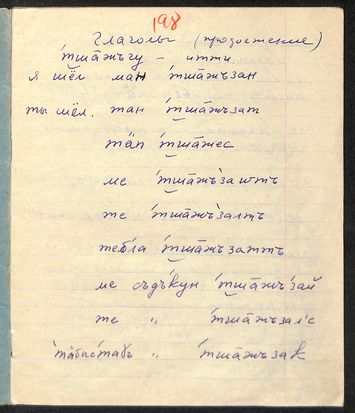 198
Глаголы (продолжение)
'тша̄жъгу – итти.
я шёл ман 'тша̄жъзан
ты шёл. тан 'тша̄жъзат
тӓп 'тша̄жес
ме 'тша̄жъ'заттъ
те 'тша̄жъ'залтъ
теб'ла 'тша̄жъзаттъ
ме съдъ'кун 'тша̄жъ'зай
те " 'тша̄жъзал'с
'тӓбыстаӷъ " 'тша̄жъзак